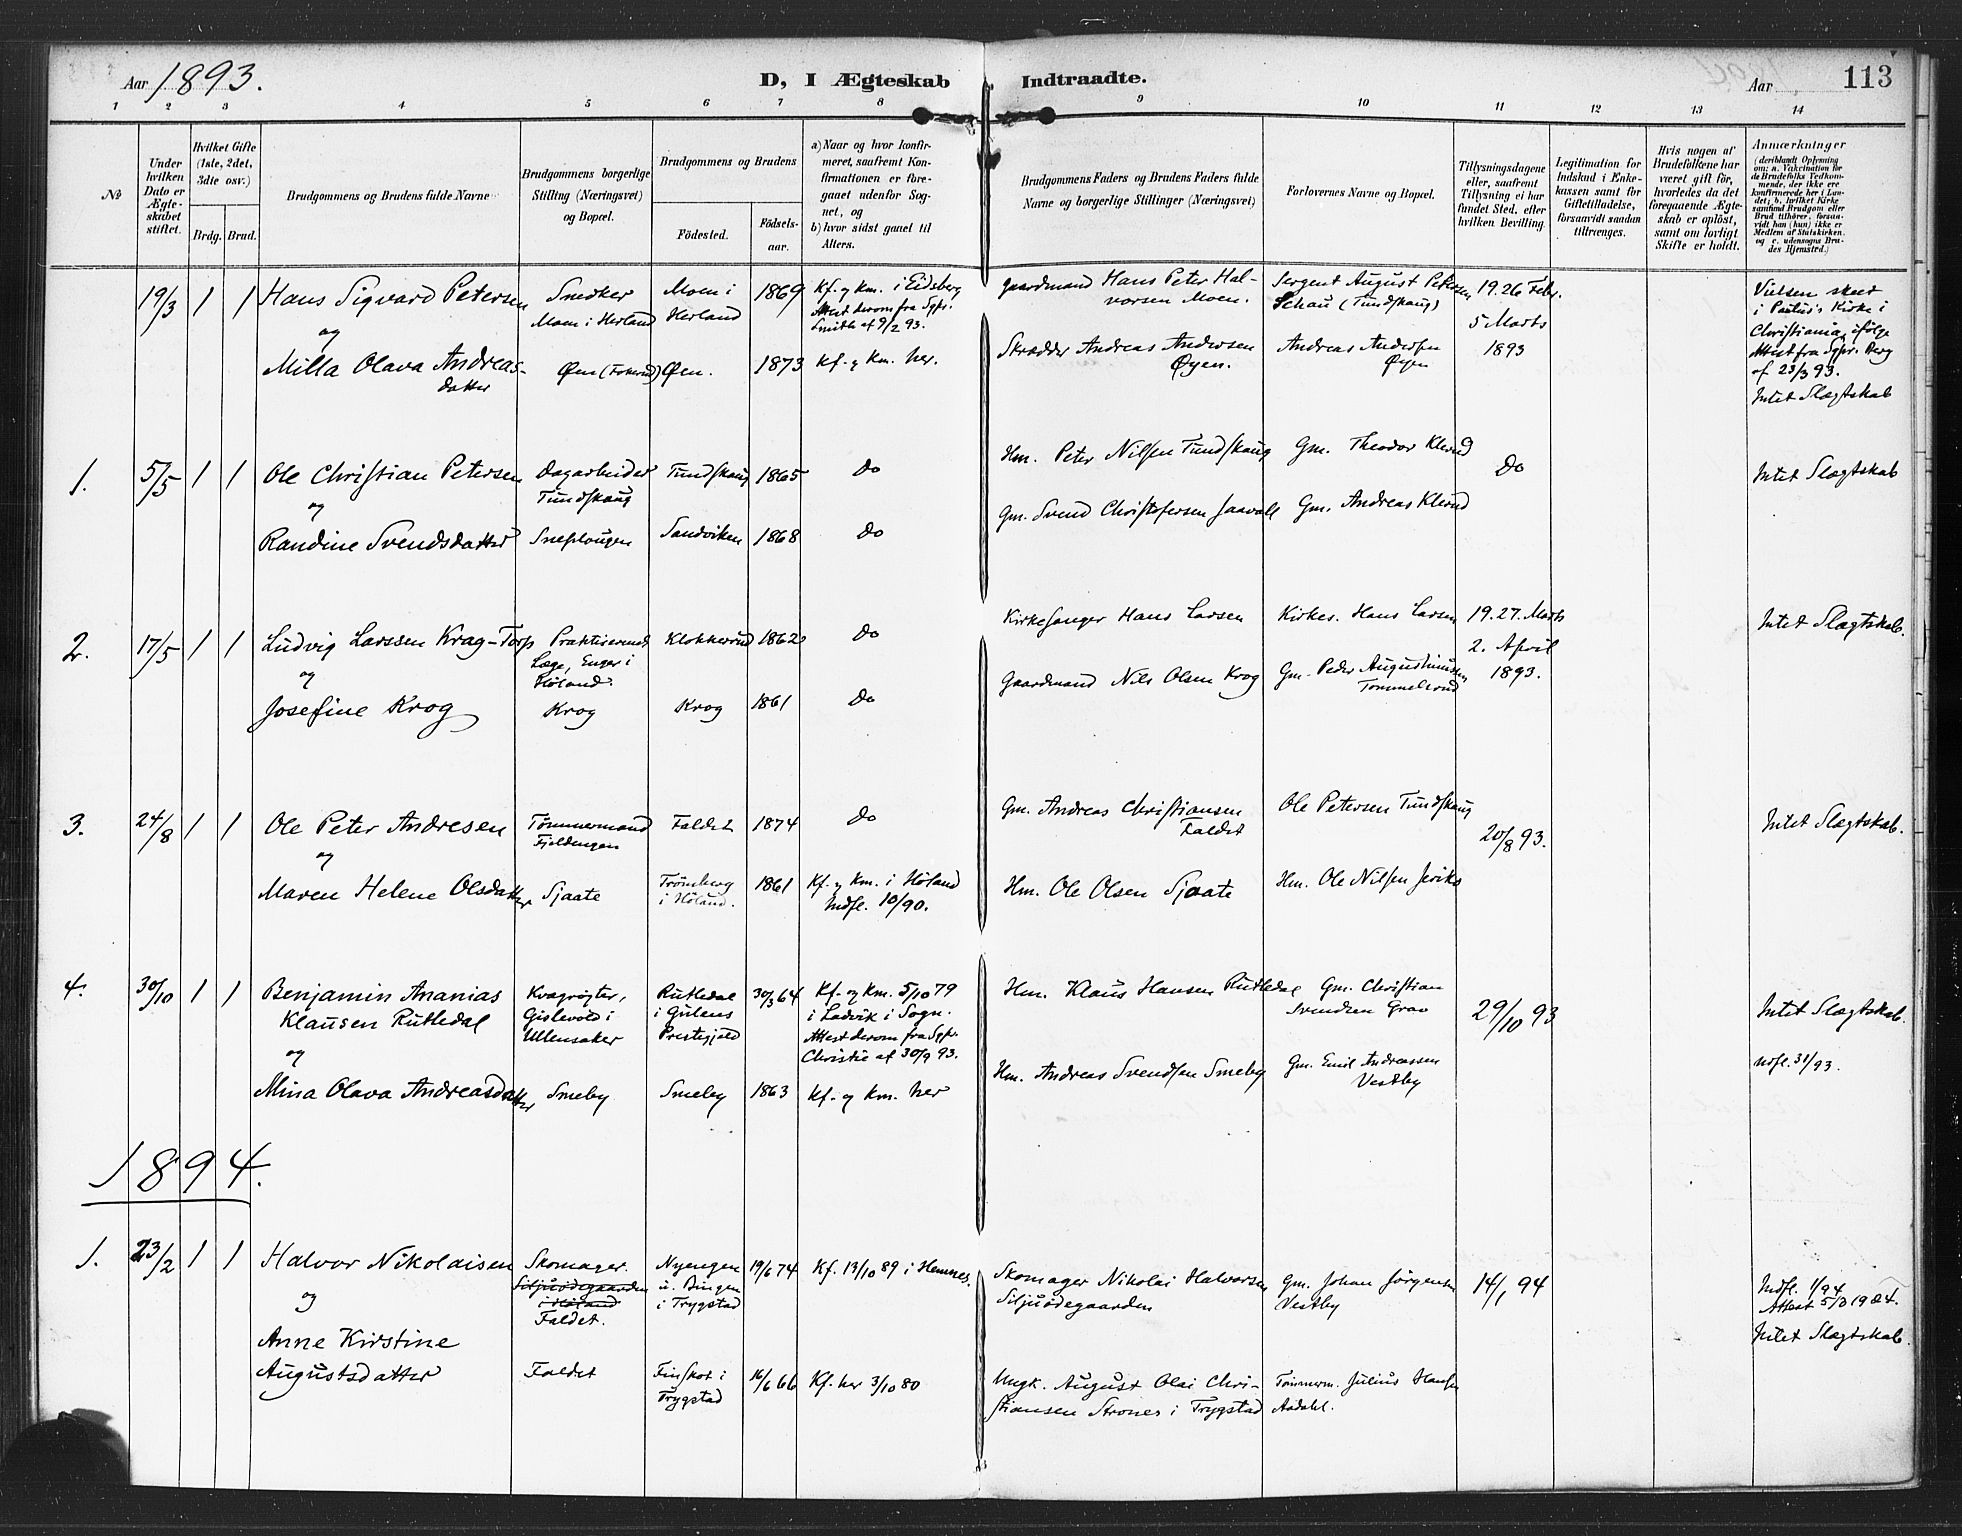 Aar 1893.
D, I Ægteskab Indtraadte.
Aar
113
1 2 3 4 5 6 7 8 9 10 11 12 13 14
No
Under hvilken Dato er Ægteskabet stiftet.
Hvilket Gifte (1ste, 2det, 3die osv.)
Brdg. Brud.
Brudgommens og Brudens fulde Navne
Brudgommens borgerlige Stilling (Næringsvei) og Bopæl.
Brudgommens og Brudens
Fødested.
Fødselsaar.
a) Naar og hvor konfirmeret, saafremt Konfirmationen er foregaaet udenfor Sognet, og
b) hvor sidst gaaet til Alters.
Brudgommens Faders og Brudens Faders fulde Navne og borgerlige Stillinger (Næringsvei)
Forlovernes Navne og Bopæl.
Tillysningsdagene eller, saafremt Tillysning ei har fundet Sted, efter hvilken Bevilling.
Legitimation for Indskud i Enkekassen samt for Giftetilladelse, forsaavidt saadan tiltrænges.
Hvis nogen af Brudefolkene har været gift før, hvorledes da det foregaaende Ægteskab er opløst, samt om lovligt Skifte er holdt.
Anmærkninger
(deriblandt Oplysning om: a. Vakcination for de Brudefolks Vedkommende, der ikke ere konfirmerede her i Landet; b. hvilket Kirkesamfund Brudgom eller Brud tilhører, forsavidt han (hun) ikke er Medlem af Statskirken, og c. udensogns Brudes Hjemsted.)
19/3 1 1 Hans Sigvard Petersen Snedker Moen i Herland Moen i Herland 1869 Kf. og km. i Eidsberg Attest derom fra Sgpr. Smith af 9/2 93. Gaardmand Hans Peter Halvorsen Moen. Sergent August Petersen Schau (Tundskaug) 19. 26 Febr. 5 Marts 1893 Vielsen skeet i Paulus's Kirke i Christiania, ifølge Attest fra Sgpr. Berg af 23/3 93.
og
Milla Olava Andreasdatter Øen Øen. 1873 Kf. og km. her. Skrædder Andreas Andersen Øyen. Andreas Andersen Øyen Intet Slægtskab
1. 5/5 1 1 Ole Christian Petersen Dagarbeider Tundskaug Tundskaug 1865 do Hm. Peter Nilsen Tundskaug Gm. Theodor Klerud do Intet Slægtskab
og
Randine Svendsdatter Sneplougen Sandviken 1868 do Gm. Svend Christofersen Gm. Andreas Klerud
2. 17/5 1 1 Ludvig Larssen Krag-Torp Praktiserende Læge, Enger i Høland. Klokkerud 1862 do Kirkesanger Hans Larsen Kirkes. Hans Larsen 19. 27. Marts 2. April 1893. Intet Slægtskab.
og
Josefine Krog Krog Krog 1861 do Gaardmand Nils Olsen Krog Gm. Peder Augustinusen Tommelsrud
3. 24/8 1 1 Ole Peter Andresen Tømmermand Fjeldengen Faldet 1874 do Gm. Andreas Christiansen Faldet Ole Petersen Tundskaug 20/8 93. Intet Slægtskab.
og
Maren Helene Olsdatter Sjaate Trømborg i Høland. 1861 Kf. og km. i Høland Indfl. 10/90. Hm. Ole Olsen Sjaate Hm. Ole Nilsen
4. 30/10 1 1 Benjamin Ananias Klausen Rutledal Kvægrøgter, Gislevold i Ullensaker Rutledal i Gulens Prestegjæld 30/3 64 Kf. og km. 5/10 79 i Ladvik i Sogn. Attest derom fra Sgpr. Christie af 30/9 93. Hm. Klaus Hansen Rutledal Gm. Christian Svendsen Grav 29/10 93 Intet Slægtskab.
og
Mina Olava Andreasdatter Smeby Smeby 1863 Kf. og km. her Hm. Andreas Svendsen Smeby Gm. Emil Andreassen Vestby Udfl. 31/93.
1894.
1. 23/2 1 1 Halvor Nikolaisen Skomager. Siljuødegaarden i Høland Faldet. Nyengen u. Bingen i Trygstad 19/6 74 Kf. 13/10 89 i Hemnes. Skomager Nikolai Halvorsen Siljuødegaarden Gm. Johan Jørgensen Vestby 14/1 94 Indfl. 1/94 Attest 5/3 1904.
og
Intet Slægtskab.
Anne Kirstine Augustsdatter Faldet Finskot i Trygstad 16/6 66 Kf. her 3/10 80 Ungk. August Olai Christiansen Strones i Trygstad Tømmerm. Julius Hansen Aadahl.